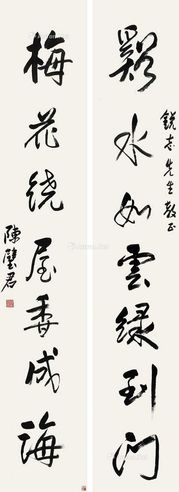 谿水如雲緑到門
銳志先生教正
梅花繞屋香成海
陳璧君